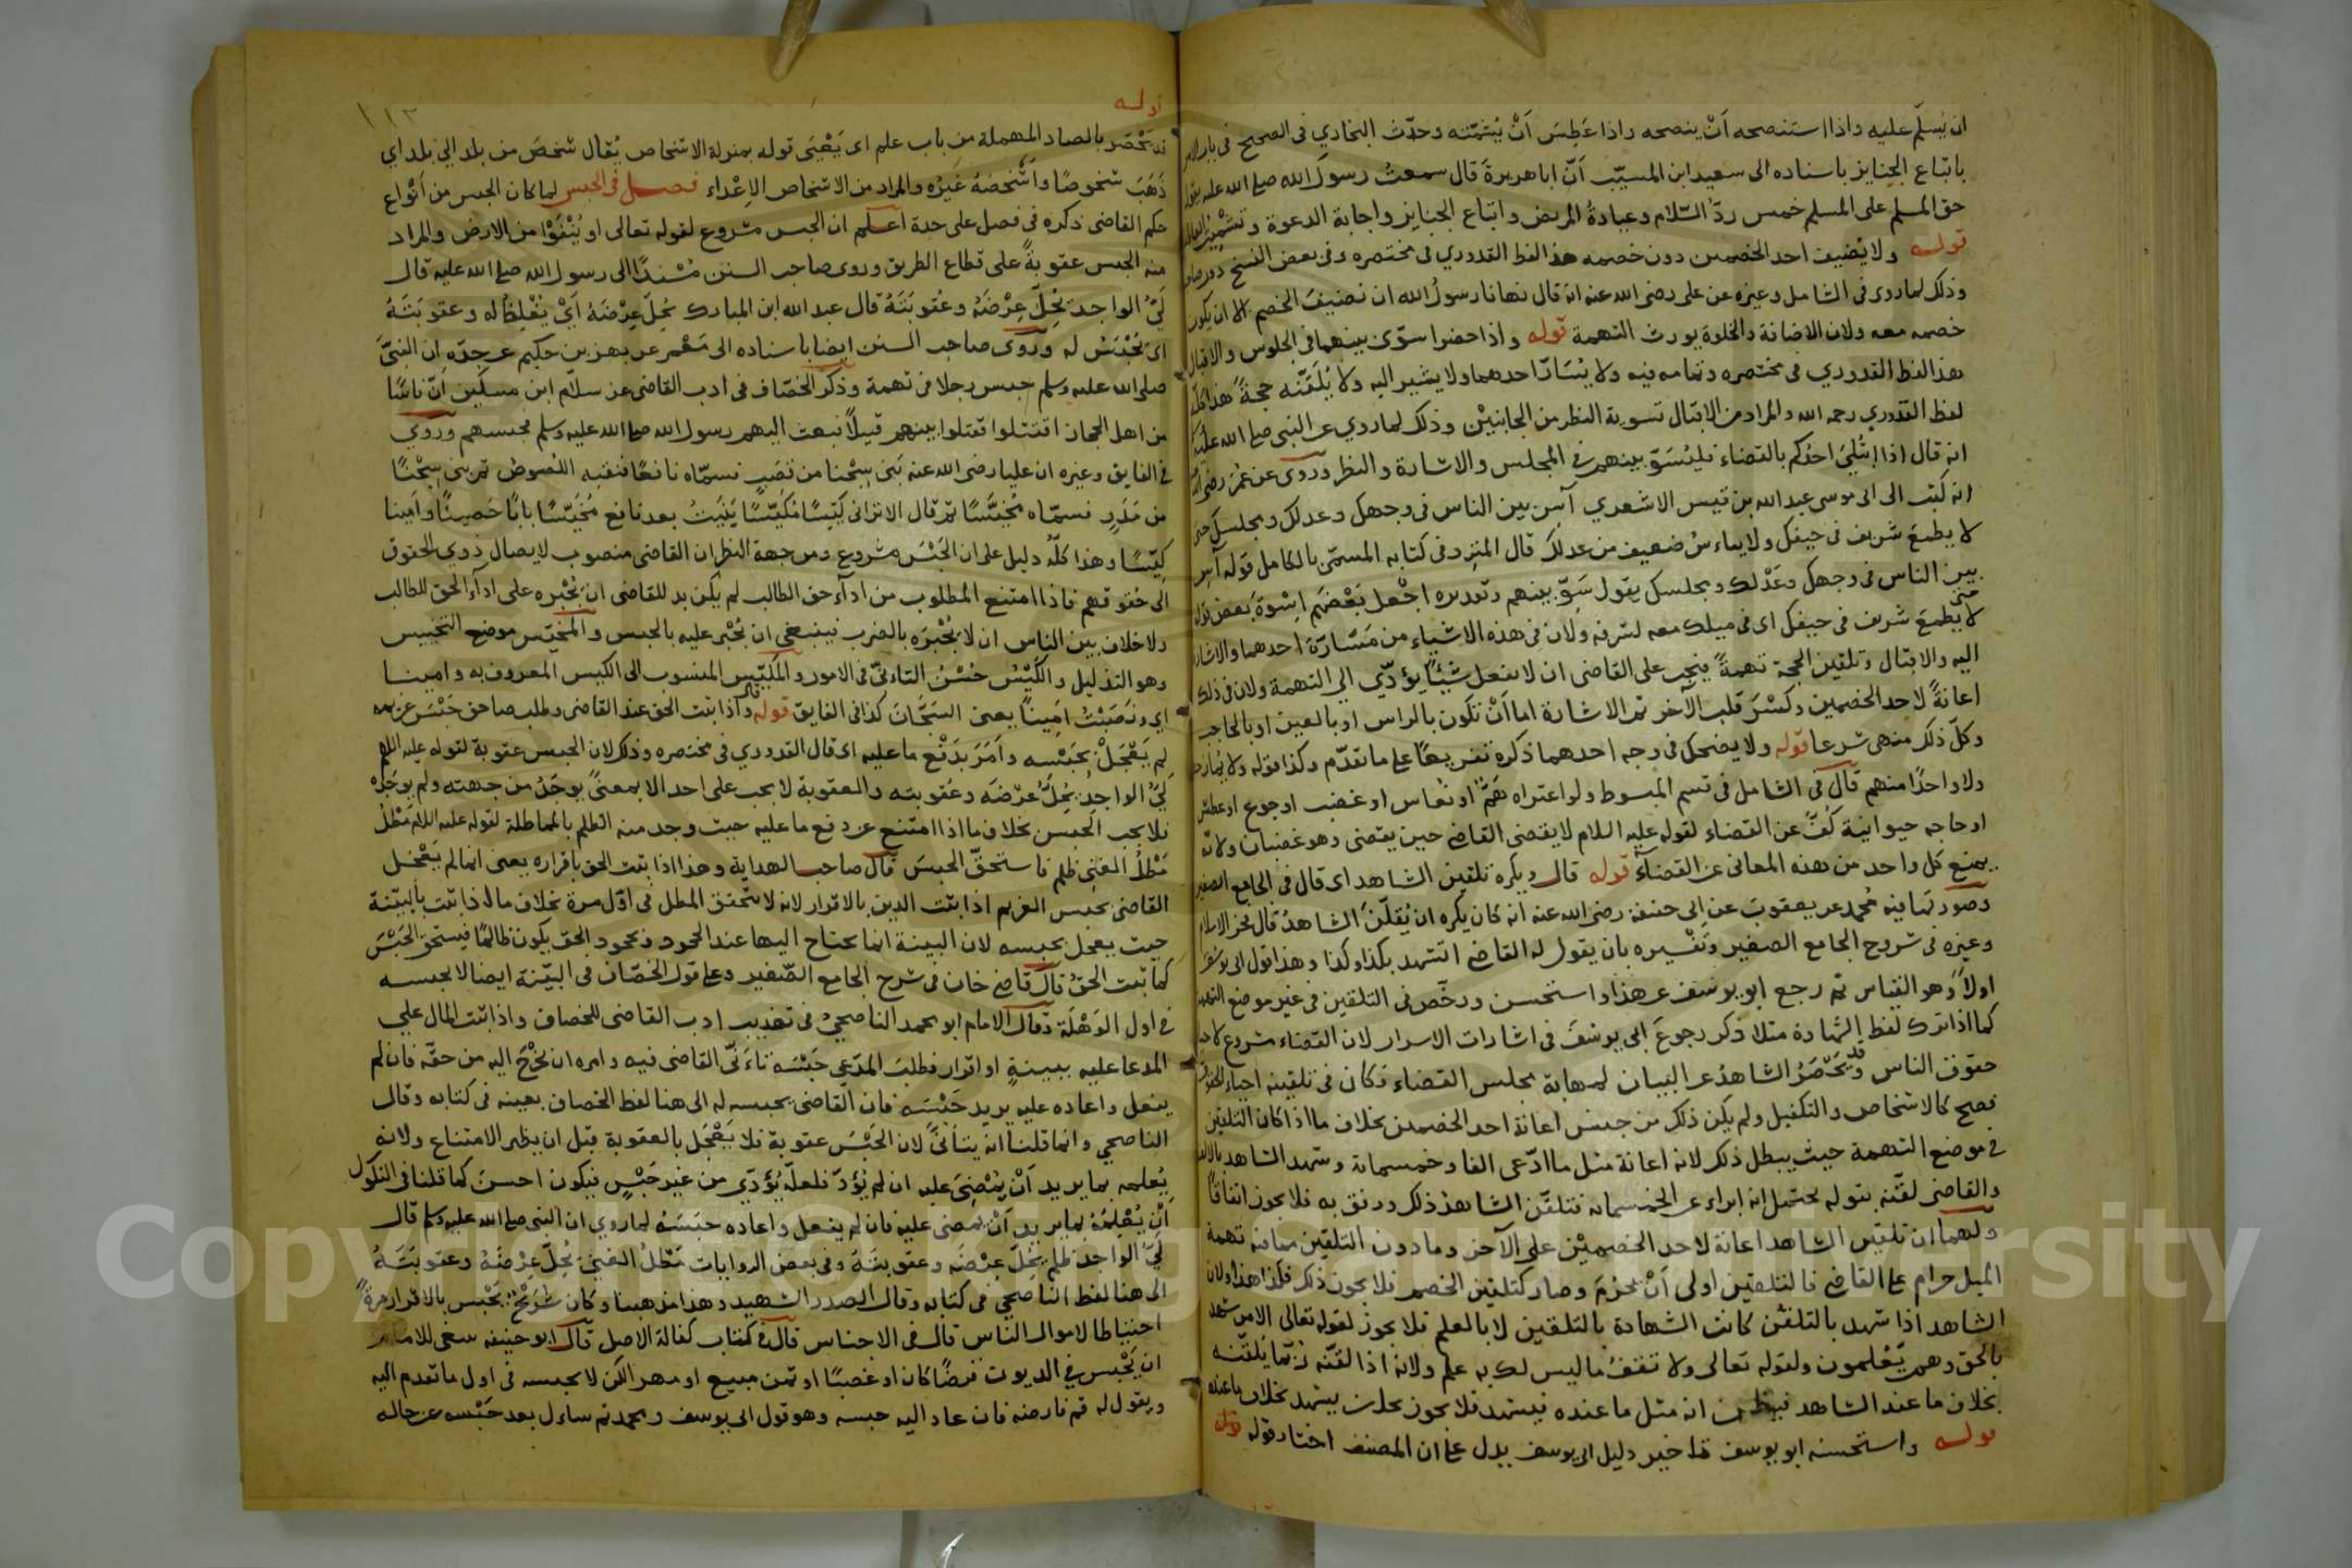 ان يُسلّم عليه واذا استنصحه اَنْ ينصحه واذا عَطِسَ اَنْ يُشَمِّتَه وحدّث البخاري في الصحيح في باب الامر
باتباع الجنايز باسناده الى سعيد ابن المسيّب اَنّ ابا هريرةَ قال سمعتُ رسولَ الله صلى الله عليه يقول
حق المسلم على المسلم خمس ردّ السّلام وعيادةُ المريض واتباع الجنايز واجابة الدعوة وتشميتُ العاطس
قوله ولا يُضيف احد الخصمين دون خصمه هذا لفظ القدوري في مختصره وفي بعض النسخ دون صاحبه
وذلك لما روى في الشامل وغيره عن على رضى الله عنه انه قال نهانا رسولُ الله ان نضيفَ الخصم الا ان يكون
خصمه معه ولان الاضافة والخلوة يورث التهمة قوله واذا حضرا سوّى بينهما في الجلوس والاقبال
هذا لفظ القدوري في مختصره وتمامه فيه ولا يُسَارّ احدهما ولا يشير اليه ولا يُلَقّنه حجةً هذا كلّه
لفظ القدوري رحمه الله والمراد من الاقبال تسوية النظر من الجانبيْن وذلك لما روي عن النبي صلى الله عليه
انه قال اذا ابتُلِيَ احدُكم بالقضاء فليُسَوّ بينهم في المجلس والاشارة والنظر وروى عن عُمَرَ رضى الله
انه كتب الى ابى موسى عبد الله بن قيس الاشعري آسِ بين الناس في وجهك وعدلك ومجلسك حتى
لا يطمعَ شريف في حيفك ولا يياءسُ ضعيف من عدلك قال المبرد في كتابه المسمّى بالكامل قوله آسِ
بين الناس في وجهك وعَدْلك ومجلسك يقول سَوِّ بينهم وتقديره اجْعل بَعْضَهم اِسْوةَ بعض قوله
حتى لا يطمعَ شريف في حيفك اى في ميلك معه لشرفه ولان في هذه الاشياء من مَسَارّة احدهما والاشارة
اليه والاقبال وتلقين الحجة تهمةً فيجب على القاضى ان لا يفعل شيْئًا يؤدّي الى التهمة ولان في ذلك
اعانةً لاحد الخصمين وكَسْرَ قلب الآخر ثم الاشارة اما اَنْ تكون بالراس او بالعين او بالحاجب
وكلّ ذلك منهى شرعا قوله ولا يضحك في وجه احدهما ذكره تفريعًا على ما تقدّم وكذا قوله ولا يُمازح
ولا واحدًا منهم قال في الشامل في قسم المبسوط ولو اعتراه هَمٌّ او نُعاس او غضب او جوع او عطش
او حاجه حيوانية كَفَّ عن القضاء لقوله عليه السلام لا يقضى القاضى حين يقضى وهو غضبان ولانّه
يمنع كل واحد من هذه المعانى عن القضاءِ قوله قال ويكره تلقين الشاهد اى قال في الجامع الصغير
وصورتها فيه مُحمد عن يعقوبَ عن ابى حنيفة رضى الله عنه انه كان يكره ان يُقلّنَ الشاهدُ قال فخر الاسلام
وغيره في شروح الجامع الصغير وتَفْسيره بان يقول له القاضى اتشهد بكذا وكذا وهذا قول ابى يوسف
اولاً وهو القياس ثم رجع ابو يوسف عن هذا واستحسن ورخّص في التلقين في غير موضع التهمة
كما اذا ترك لفظ الشهادة مثلا ذكر رجوعَ ابى يوسُفَ في اشارات الاسرار لان القضاء مشروع لاحياء
حقوق الناس وقد يَحْصَرُ الشاهدُ عن البيان لمهابة مجلس القضاء فكان في تلقينه احياء للحقوق
فصح كالاشخاص والتكفيل ولم يكن ذلك من جنس اعانة احد الخصمين بخلاف ما اذا كان التلقين
في موضع التهمة حيث يبطل ذلك لانه اعانة مثل ما ادّعى الفا وخمسمائة وشهد الشاهد بالالف
والقاضى لقّنه بقوله يحتمل انه ابراء عن الخمسمائه فتلقّن الشاهد ذلك ووفق به فلا يجوز اتفاقًا
ولهما ان تلقين الشاهد اعانة لاحد الخصميْن على الآخر وما دون التلقين مما فيه تهمة
الميل حرام على القاضى فالتلقين اولى اَنْ يحرُمَ وصار كتلقين الخصم فلا يجوز ذلك فكذا هذا ولان
الشاهد اذا شهد بالتلقن كانت الشهادة بالتلقين لا بالعلم فلا يجوز لقوله تعالى الا من شهد
بالحق وهم يَعْلمون ولقوله تعالى ولا تقفُ ما ليس لك به علم ولانه اذا لقّنه رُبّما يُلقّنه
بخلاف ما عند الشاهد فيظن انه مثل ما عنده فيشهد فلا يجوز بخلاف ما عنده
قوله واستحسنه ابو يوسف تاخير دليل ابى يوسف يدل على ان المصنف اختار قوله قوله
قوله
١١٣
قد يَحْصَر بالصاد المهملة من باب علم اى يَعْيَى قوله بمنزلة الاشخاص يُقال شخصَ من بلد الى بلد اي
ذَهَبَ شخوصًا واَشْخصَهُ غيرُه والمراد من الاشخاص الاِعْداء فصل في الحبس لما كان الحبس من اَنْواع
حكم القاضى ذكره في فصل على حدة اعلم ان الحبس مشروع لقوله تعالى او يُنْفَوْا من الارض والمراد
منه الحبس عقوبةً على قطاع الطريق وروى صاحب السنن مُسْندًا الى رسول الله صلى الله عليه قال
لَيُّ الواجد يُحِلّ عِرْضَهُ وعُقوبَتَهُ قال عبد الله ابن المبارك يُحِلّ عِرْضَهُ اَيْ يُغْلظ له وعقوبَتَهُ
اى يُحْبَسُ له وروى صاحب السنن ايضا باسناده الى مَعْمر عن بهز بن حكيم عن جدّه ان النبىَّ
صلى الله عليه وسلم حبس رجلا في تهمة وذكر الخصّاف في ادب القاضى عن سلاّم ابن مسكين اَنّ ناسًا
من اهل الحجاز اقتتلوا فقتلوا بينهم قتيلاً فبعث اليهم رسول الله صلى الله عليه وسلم فحبسهم وروي
في الفايق وغيره ان عليا رضى الله عنه بَنى سِجْنا من قصَبٍ فسمّاه نافعًا فنقبه اللُّصوصُ ثم بنى سِجْنًا
من مَدَرٍ فسمّاه مُخَيَّسًا ثم قال الا ترانى كَيِّسًا مُكَيَّسًا بَنَيْتُ بعد نافع مُخَيَّسًا بابًا حَصِينًا واَمينا
كيّسًا وهذا كلّه دليل على ان الحَبْسَ مشروع ومن جهة النظر ان القاضى منصوب لايصال ذوي الحقوق
الى حُقوقهم فاذا امتنع المطلوب من اداءِ حق الطالب لم يكن بد للقاضى ان يُجْبره على اداءِ الحق للطالب
ولا خلاف بين الناس ان لا يُجْبرَه بالضرب فينبغي ان يُجْبر عليه بالحبس والمُخيّس موضع التخييس
وهو التذليل والكَيْسُ حُسْنُ التاءنّى في الامور والمُكيّس المنسوب الى الكيس المعروف به وامينا
اي ونَصَبْتُ امِينًا يعنى السَجّانَ كذا في الفايق قوله واذا ثبت الحق عند القاضى وطلب صاحق حَبْسَ غريمه
لم يَعْجَلْ بحَبْسه واَمَرَ بدَفْع ما عليه اى قال القدوري في مختصره وذلك لان الحبس عقوبة لقوله عليه السلام
لَيُّ الواجِد يُحِلُّ عِرْضَه وعقوبته والعقوبة لا يجب على احد الا بمعنىً يوجَدُ من جهته ولم يوجَدْ
فلا يجب الحبس بخلاف ما اذا امتنع عن دفع ما عليه حيث وجد منه الظلم بالمماطلة لقوله عليه السلام مَطْلُ
مَطْلُ الغنى ظلم فاستحقّ الحبسَ قال صاحب الهداية وهذا اذا ثبت الحق باقراره يعنى انما لم يَعْجَل
القاضى بحبس الغريم اذا ثبت الدين بالاقرار لانه لا يتحقق المطل في اوّل مرة بخلاف ما اذا ثبت بالبيّنة
حيث يعجل بحبسه لان البينة انما يحتاج اليها عند الجحود وبجحود الحق يكون ظالمًا فيستحق الحَبْسَ
كما ثبت الحقُّ قال قاضى خان في شرح الجامع الصّغير وعلى قول الخصّاف في البيّنة ايضا لا يحبسه
في اول الوَهْلَة وقال الامام ابو محمد الناصحيُّ في تهذيب ادب القاضى للخصاف واذا ثبت المال على
المدعا عليه ببينةٍ او اقرار فطلبَ المدّعِي حَبْسَه تاءَنّى القاضى فيه وامره ان يخْرُجَ اليه من حقّه فان لم
يفعل واعاده عليه يريد حَبْسَه فان القاضى يحبسه له الى هنا لفظ الخصاف بعينه في كتابه وقال
الناصحي وانما قلنا انه يتأنّىَ لان الحَبْسَ عقوبة فلا يَعْجَل بالعقوبة قبل ان يظهر الامتناع ولانه
يُعلمه بما يريد اَنْ يُمْضِيَ عليه ان لم يُؤَدّ فلعلّه يُؤدّي من غير حَبْسٍ فيكون احسنَ كما قلنا في النكول
اَنْ يُعْلِمَهُ بما يريد اَنْ يمضى عليه فان لم يفعل واعاده حبَسَهُ لما روي ان النبى صلى الله عليه وسلم قال
لَيُّ الواجد ظلم يُحِلّ عِرْضَه وعقوبتَهَ وفي بعض الروايات مَطْلُ الغنيّ يُحِلّ عِرْضَهُ وعقوبَتَهُ
الى هنا لفظ الناصحي في كتابه وقال الصدر الشهيد وهذا مذهبنا وكان شُرَيْحٌ يَحْبس بالاقرار مرةً
احتياطا لاموال الناس قال في الاجناس قال في كتاب كفالة الاصل قال ابو حنيفه ينبغى للامام
ان يَحْبس في الديون قرضًا كان او غصبًا او ثمن مبيع او مهر الكن لا يحبسه في اول ما تقدم اليه
ويقول له قم فارضه فان عاد اليه حبسه وهو قول ابى يوسف ومحمد ثم ساءل بعد حَبْسه عن حاله